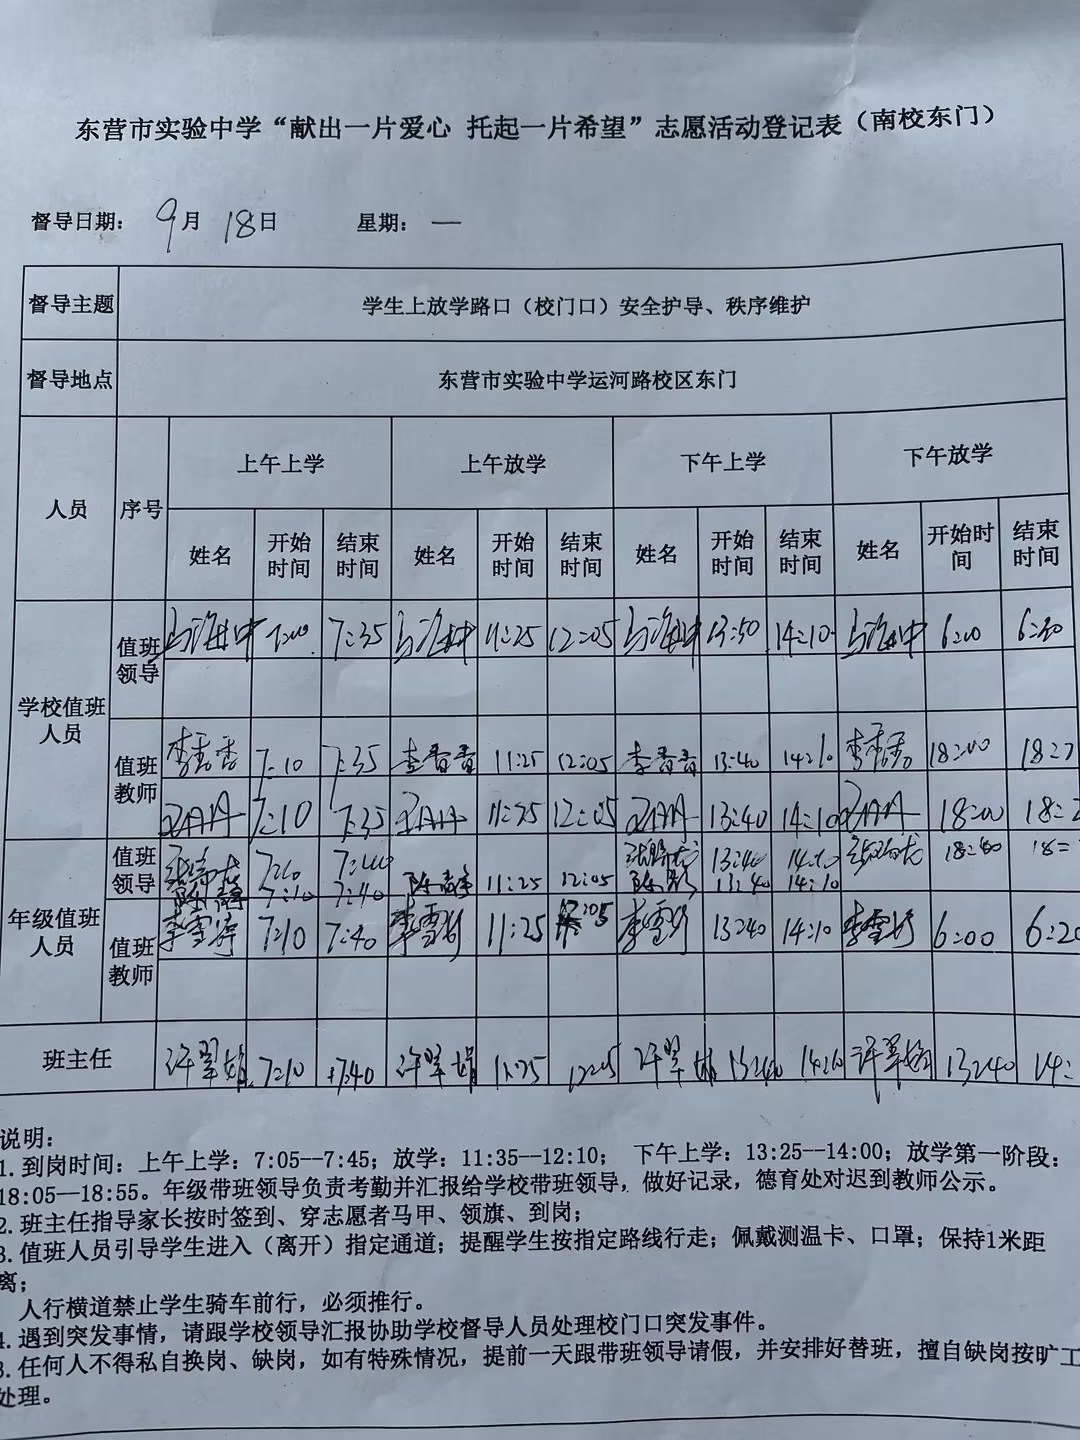 东营市实验中学“献出一片爱心 托起一片希望”志愿活动登记表（南校东门）
督导日期： 9月 18日 星期： 一
督导主题 学生上放学路口（校门口）安全护导、秩序维护
督导地点 东营市实验中学运河路校区东门
人员 序号 上午上学 上午放学 下午上学 下午放学
姓名 开始时间 结束时间 姓名 开始时间 结束时间 姓名 开始时间 结束时间 姓名 开始时间 结束时间
学校值班人员 值班领导 7:00 7:35 11:25 12:05 13:50 14:10 6:00
值班教师 7:10 7:35 李香香 11:25 12:05 李香香 13:40 14:10 18:00
7:10 7:35 11:25 12:05 13:40 14:10 18:00
年级值班人员 值班领导 7:40 13:40 14:10
7:10 7:40 11:25 12:05 13:40 14:10
值班教师 7:10 7:40 11:25 13:40 14:10 6:00 6:20
班主任 许翠娟 7:10 7:40 许翠娟 11:25 12:05 许翠娟 13:40 14:10 许翠娟 13:40 14:
说明：
1.到岗时间：上午上学：7:05--7:45；放学：11:35--12:10； 下午上学：13:25--14:00；放学第一阶段：
18:05--18:55。年级带班领导负责考勤并汇报给学校带班领导，做好记录，德育处对迟到教师公示。
2.班主任指导家长按时签到、穿志愿者马甲、领旗、到岗；
3.值班人员引导学生进入（离开）指定通道；提醒学生按指定路线行走；佩戴测温卡、口罩；保持1米距
离；
人行横道禁止学生骑车前行，必须推行。
4.遇到突发事情，请跟学校领导汇报协助学校督导人员处理校门口突发事件。
3.任何人不得私自换岗、缺岗，如有特殊情况，提前一天跟带班领导请假，并安排好替班，擅自缺岗按旷工
处理。